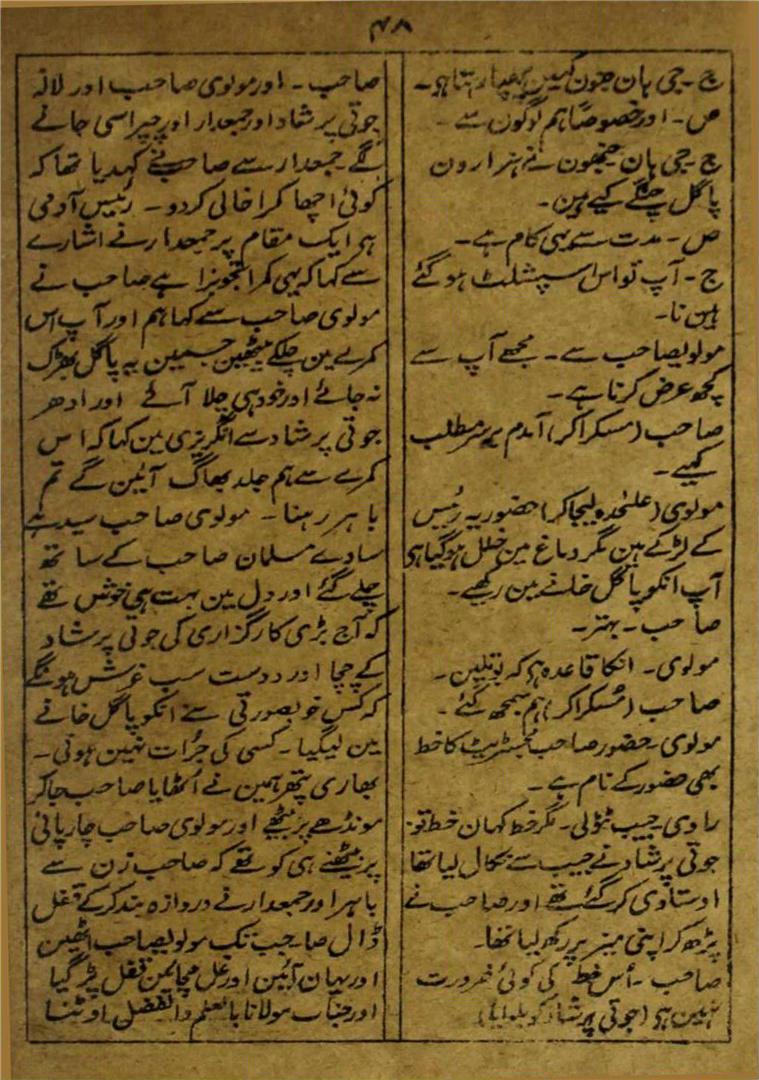 ۴۸
ج۔ جی ہان جنون کہین چھپا رہتا ہو۔
ص۔ اور خصوصاً ہم لوگون سے۔
ج۔ جی ہان جنھون نے ہزارون
پاگل چنگے کیے ہین۔
ص۔ مدت سے یہی کام ہے۔
ج۔ آپ تو اس اسپشلسٹ ہو گئے
ہین نا۔
مولویصاحب سے۔ مجھے آپ سے
کچھ عرض کرنا ہے۔
صاحب (مسکراکر) آمدم برسر مطلب
کہیے۔
مولوی (علٰحدہ لیجاکر) حضور یہ رئیس
کے لڑکے ہین مگر دماغ مین خلل ہو گیا ہی
آپ انکو پاگل خانے مین رکھیے۔
صاحب۔ بہتر۔
مولوی۔ انکا قاعدہ ہی کہ
صاحب (مسکراکر) ہم سمجھ گئے۔
مولوی۔ حضور صاحب مجسٹریٹ کا خط
بھی حضور کے نام ہے۔
راوی۔ جیب ٹٹولی۔ مگر خط کہان خط تو
جوتی پرشاد نے جیب سے نکال لیا تھا
اوستادی کر گئے تھے اور صاحب نے
پڑھ کر اپنی میز پر رکھ لیا تھا۔
صاحب۔ اُس خط کی کوئی ضرورت
نہین ہی (جوتی پرشاد کو بلوایا)
صاحب۔ اور مولوی صاحب اور لالہ
جوتی پرشاد اور جمعدار اور چپراسی جانے
لگے۔ جمعدار سے صاحب نے کہدیا تھا کہ
کوئی اچھا کمرا خالی کردو۔ رئیس آدمی
ہی ایک مقام پر جمعدار نے اشارے
سے کہا کہ یہی کمرا تجویز ا ہے صاحب نے
مولوی صاحب سے کہا ہم اور آپ اس
کمرے مین چلکے بیٹھین جسمین یہ پاگل بھڑک
نہ جائے اور خود ہی چلا آئے اور ادھر
جوتی پرشاد سے انگریزی مین کہا کہ اس
کمرے سے ہم جلد بھاگ آئین گے تم
باہر رہنا۔ مولوی صاحب سیدھے
سادے مسلمان صاحب کے ساتھ
چلے گئے اور دل مین بہت ہی خوش تھے
کہ آج بڑی کارگزاری کی جوتی پرشاد
کے چچا اور دوست سب خوش ہونگے
کہ کس خوبصورتی سے انکو پاگل خانے
مین لیگیا۔ کسی کی جرأت نہین ہوتی۔
بھاری پتھر ہمین نے اُٹھایا صاحب جاکر
مونڈھے پر بیٹھے اور مولوی صاحب چارپائی
پر بیٹھنے ہی کو تھے کہ صاحب زن سے
باہر اور جمعدار نے دروازہ بند کر کے قفل
ڈال صاحب جب تک مولویصاحب اٹھین
اور یہان آئین اور غل مچائین قفل پڑ گیا
اور جناب مولانا بالعلم والفضل اوٹنا